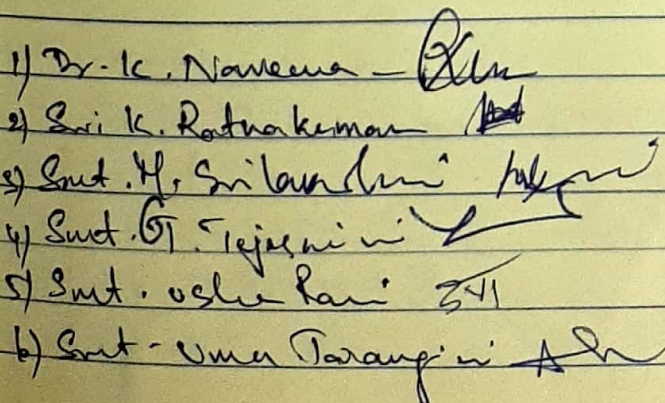 1) Dr. K. Naveena -
2) Sri K. Ratnakumar
3) Smt. M. Srilakshmi
4) Smt. G. Tejaswini
5) Smt. Usha Rani उषा
6) Smt - Uma Tarangini